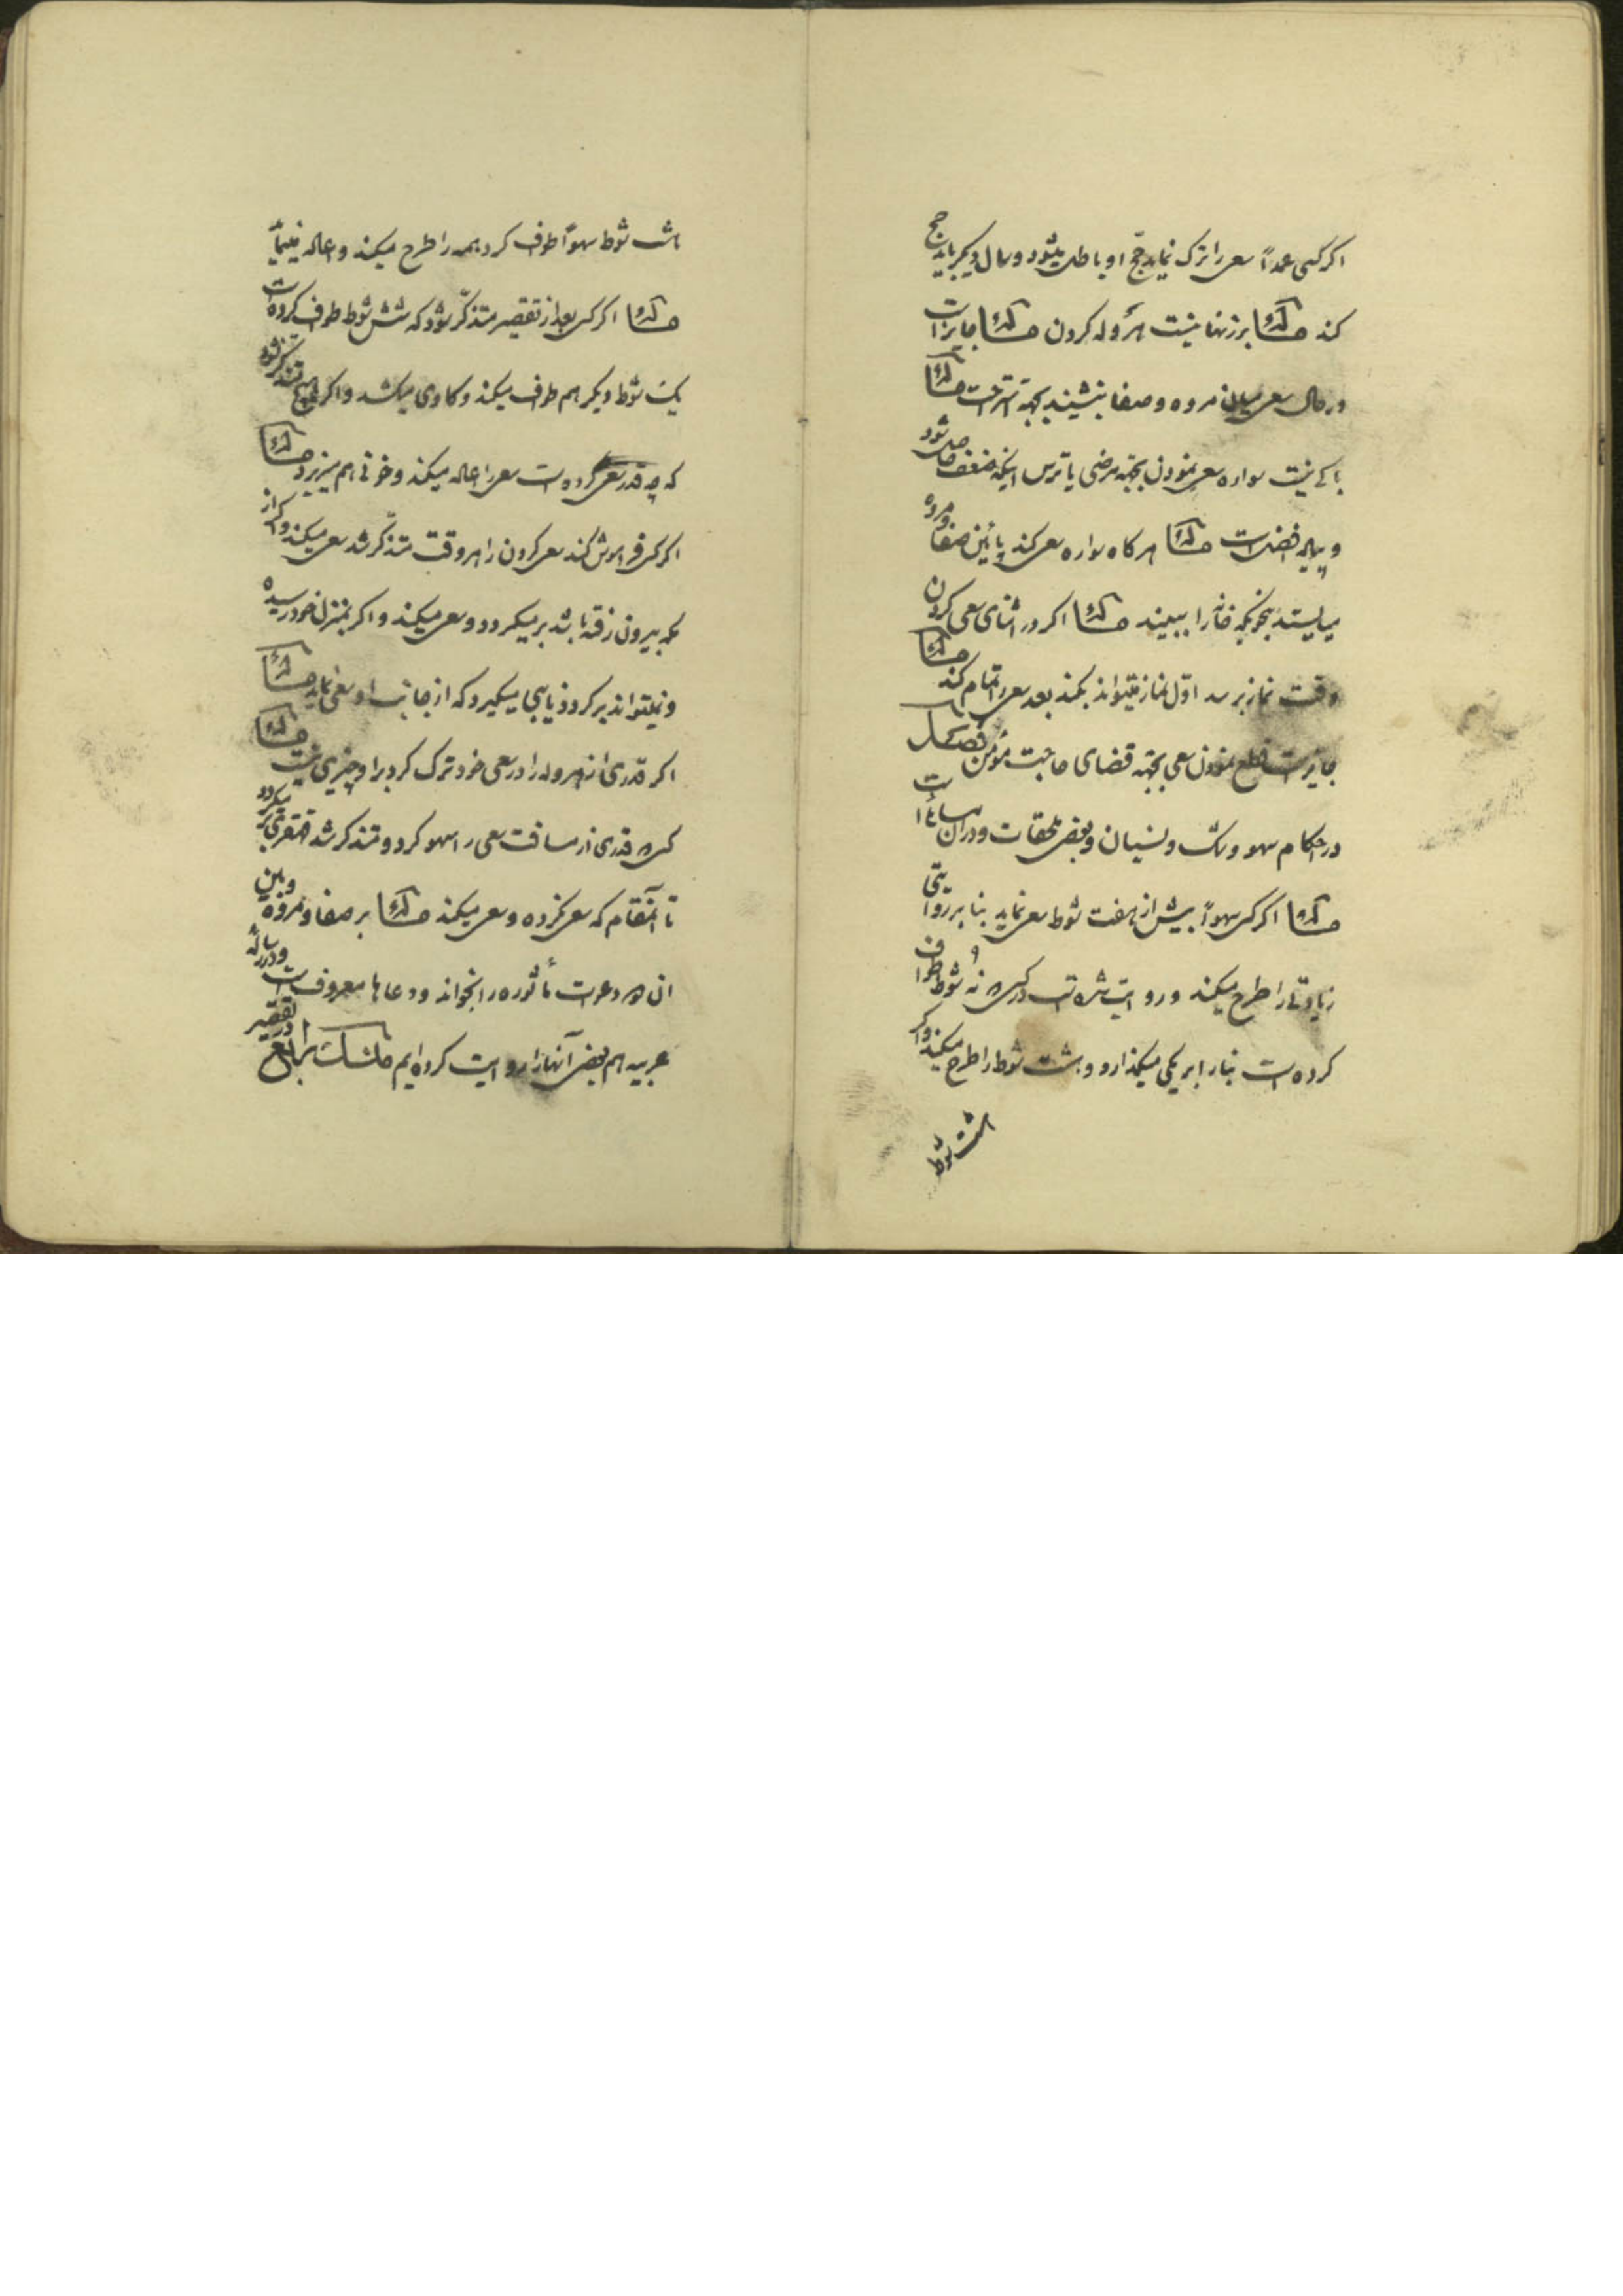 اگر کسی عمداً سعی را ترک نماید حج او باطل میشود و سال دیگر باید حج
کند مسئله بر زنها نیست هروله کردن مسئله جایز است
در حال سعی میان مروه و صفا بنشیند بجهة استراحت مسئله
باکی نیست سواره سعی نمودن بجهة مرضی یا ترس اینکه ضعف حاصل شود
و پیاده افضل است مسئله هر گاه سواره سعی کند پائین صفا و مروه
میایستد بنحویکه خانه را ببیند مسئله اگر در اثنای سعی کردن
وقت نماز برسد اول نماز میتواند بکند بعد سعی را تمام کند مسئله
جایز است قطع نمودن سعی بجهة قضای حاجت مؤمن فصل
در احکام سهو و شک و نسیان و بعض ملحقات و در آن مسائل است
مسئله اگر کسی سهواً بیش از هفت شوط سعی نماید بنا بر روایتی
زیادتی را طرح میکند و روایت شده است در کسی که نه شوط طواف
کرده است بنا را بر یکی میگذارد و هشت شوط را طرح میکند و اگر
هشت شوط
هشت شوط سهواً طواف کرد همه را طرح میکند و اعاده مینماید
مسئله اگر کسی بعد از تقصیر متذکر شود که شش شوط طواف کرده است
یک شوط دیگر هم طواف میکند و گاوی میکشد و اگر هیچ متذکر نشود
که چه قدر سعی کرده است سعی را اعاده میکند و خونی هم میریزد مسئله
اگر کسی فراموش کند سعی کردن را هر وقت متذکر شد سعی میکند و اگر از
مکه بیرون رفته باشد بر میگردد و سعی میکند و اگر بمنزل خود رسیده
و نمیتواند برگردد نایبی میگیرد که از جانب او سعی نماید مسئله
اگر قدری از هروله را در سعی خود ترک کرد بر او چیزی نیست مسئله
کسی که قدری از مسافت سعی را سهو کرد و متذکر شد قهقری بر میگردد
تا آنمقام که سعی نکرده و سعی میکند مسئله بر صفا و مروه و بین
آن دو دعوات مأثوره را بخواند و دعاها معروف است و در رساله
عربیه هم بعض آنها را روایت کرده ایم منسک رابع در تقصیر